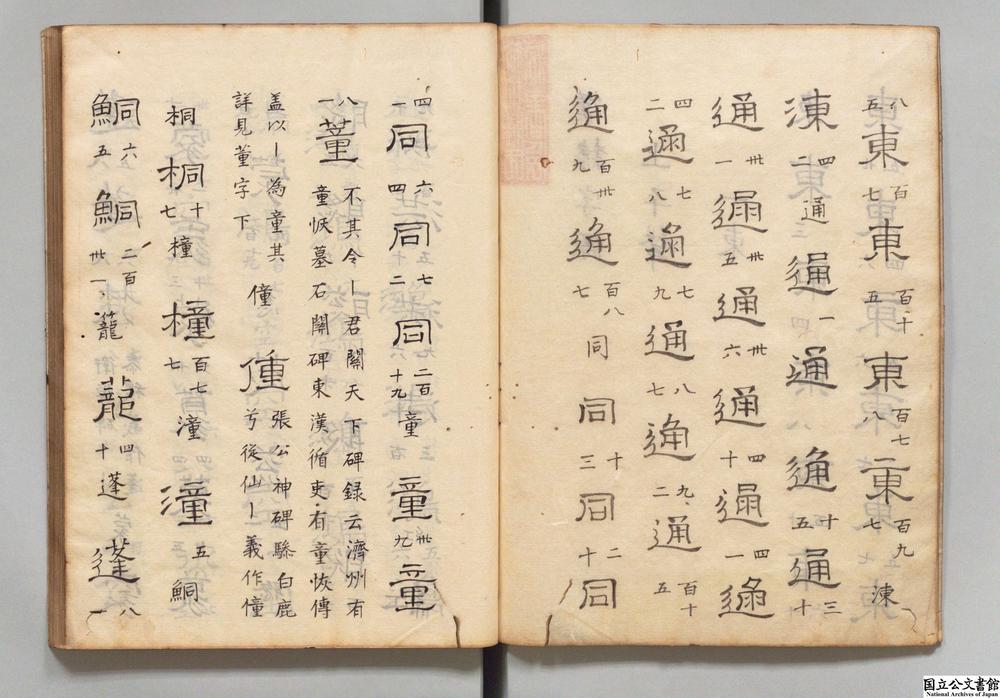 八五東百七東百十五東百七八東百九七涷
涷四通通一通通十五通三十
通卅一通卅五通卅六通四十通四一通
四二通七八通七九通八七通九二通百十五
通百卅九通百八七同同十三同二十同
四一同六四同七二同二百十九童童卅九童
八一董不其令丨君闕天下碑録云濟州有
童恢墓石闕碑東漢循吏有童恢傳
蓋以丨為童其僮僮張公神碑驂白鹿
詳見董字下兮從仙丨義作僮
桐桐十七橦橦百七七潼潼五鮦
鮦六五鮦二百卅一蘢蘢四十蓬蓬八一
国立公文書館
National Archives of Japan